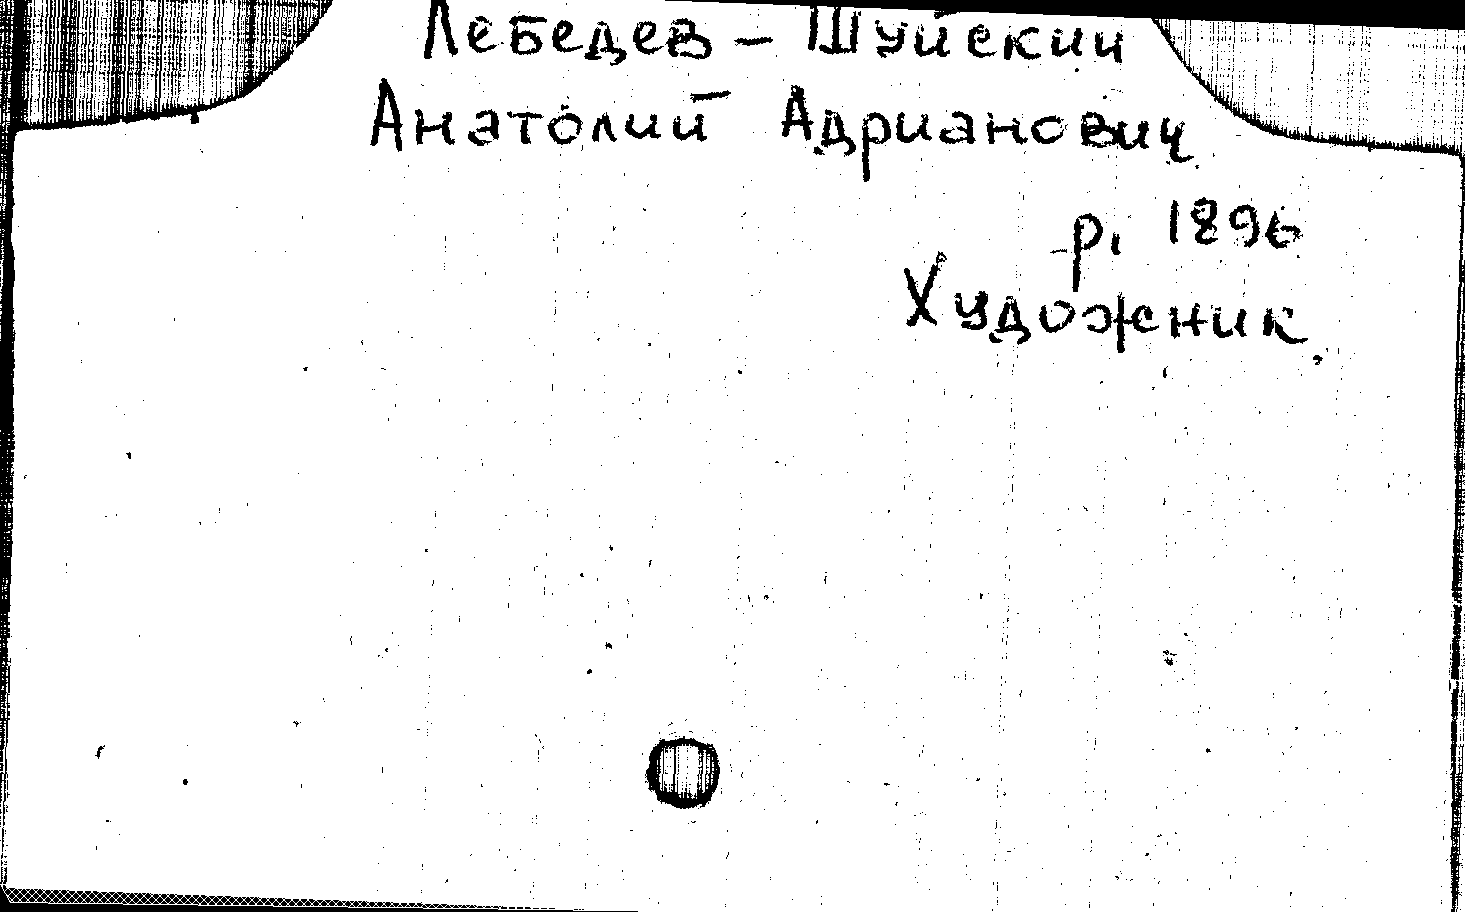 Лебедев - Шуйский
Анатолий Адрианович
р. 1896
Художник